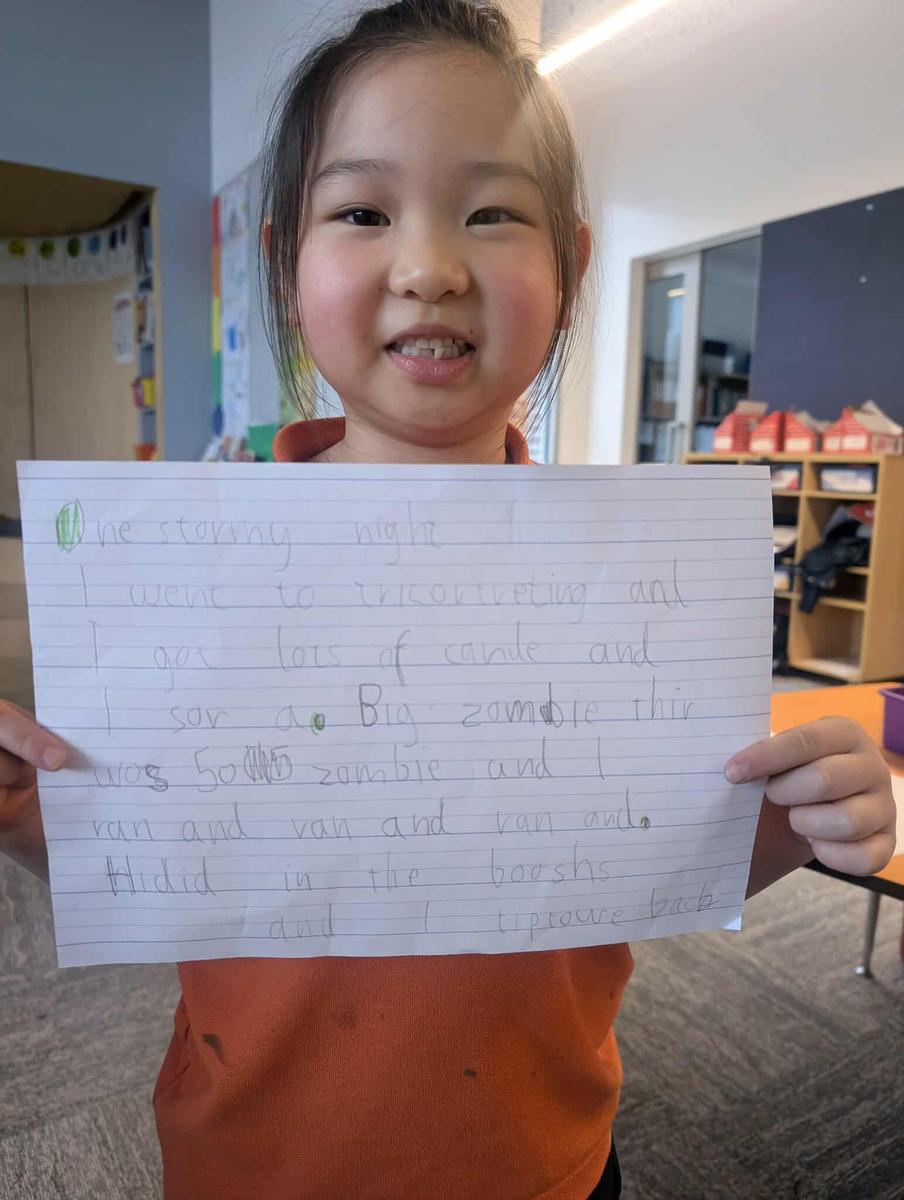 One stormy night
I went to tricortreting and
I got lots of cande and
I sor a. Big zombie thir
wos 50 zombie and I
ran and ran and ran and.
Hidid in the booshs
and I tiptowe back